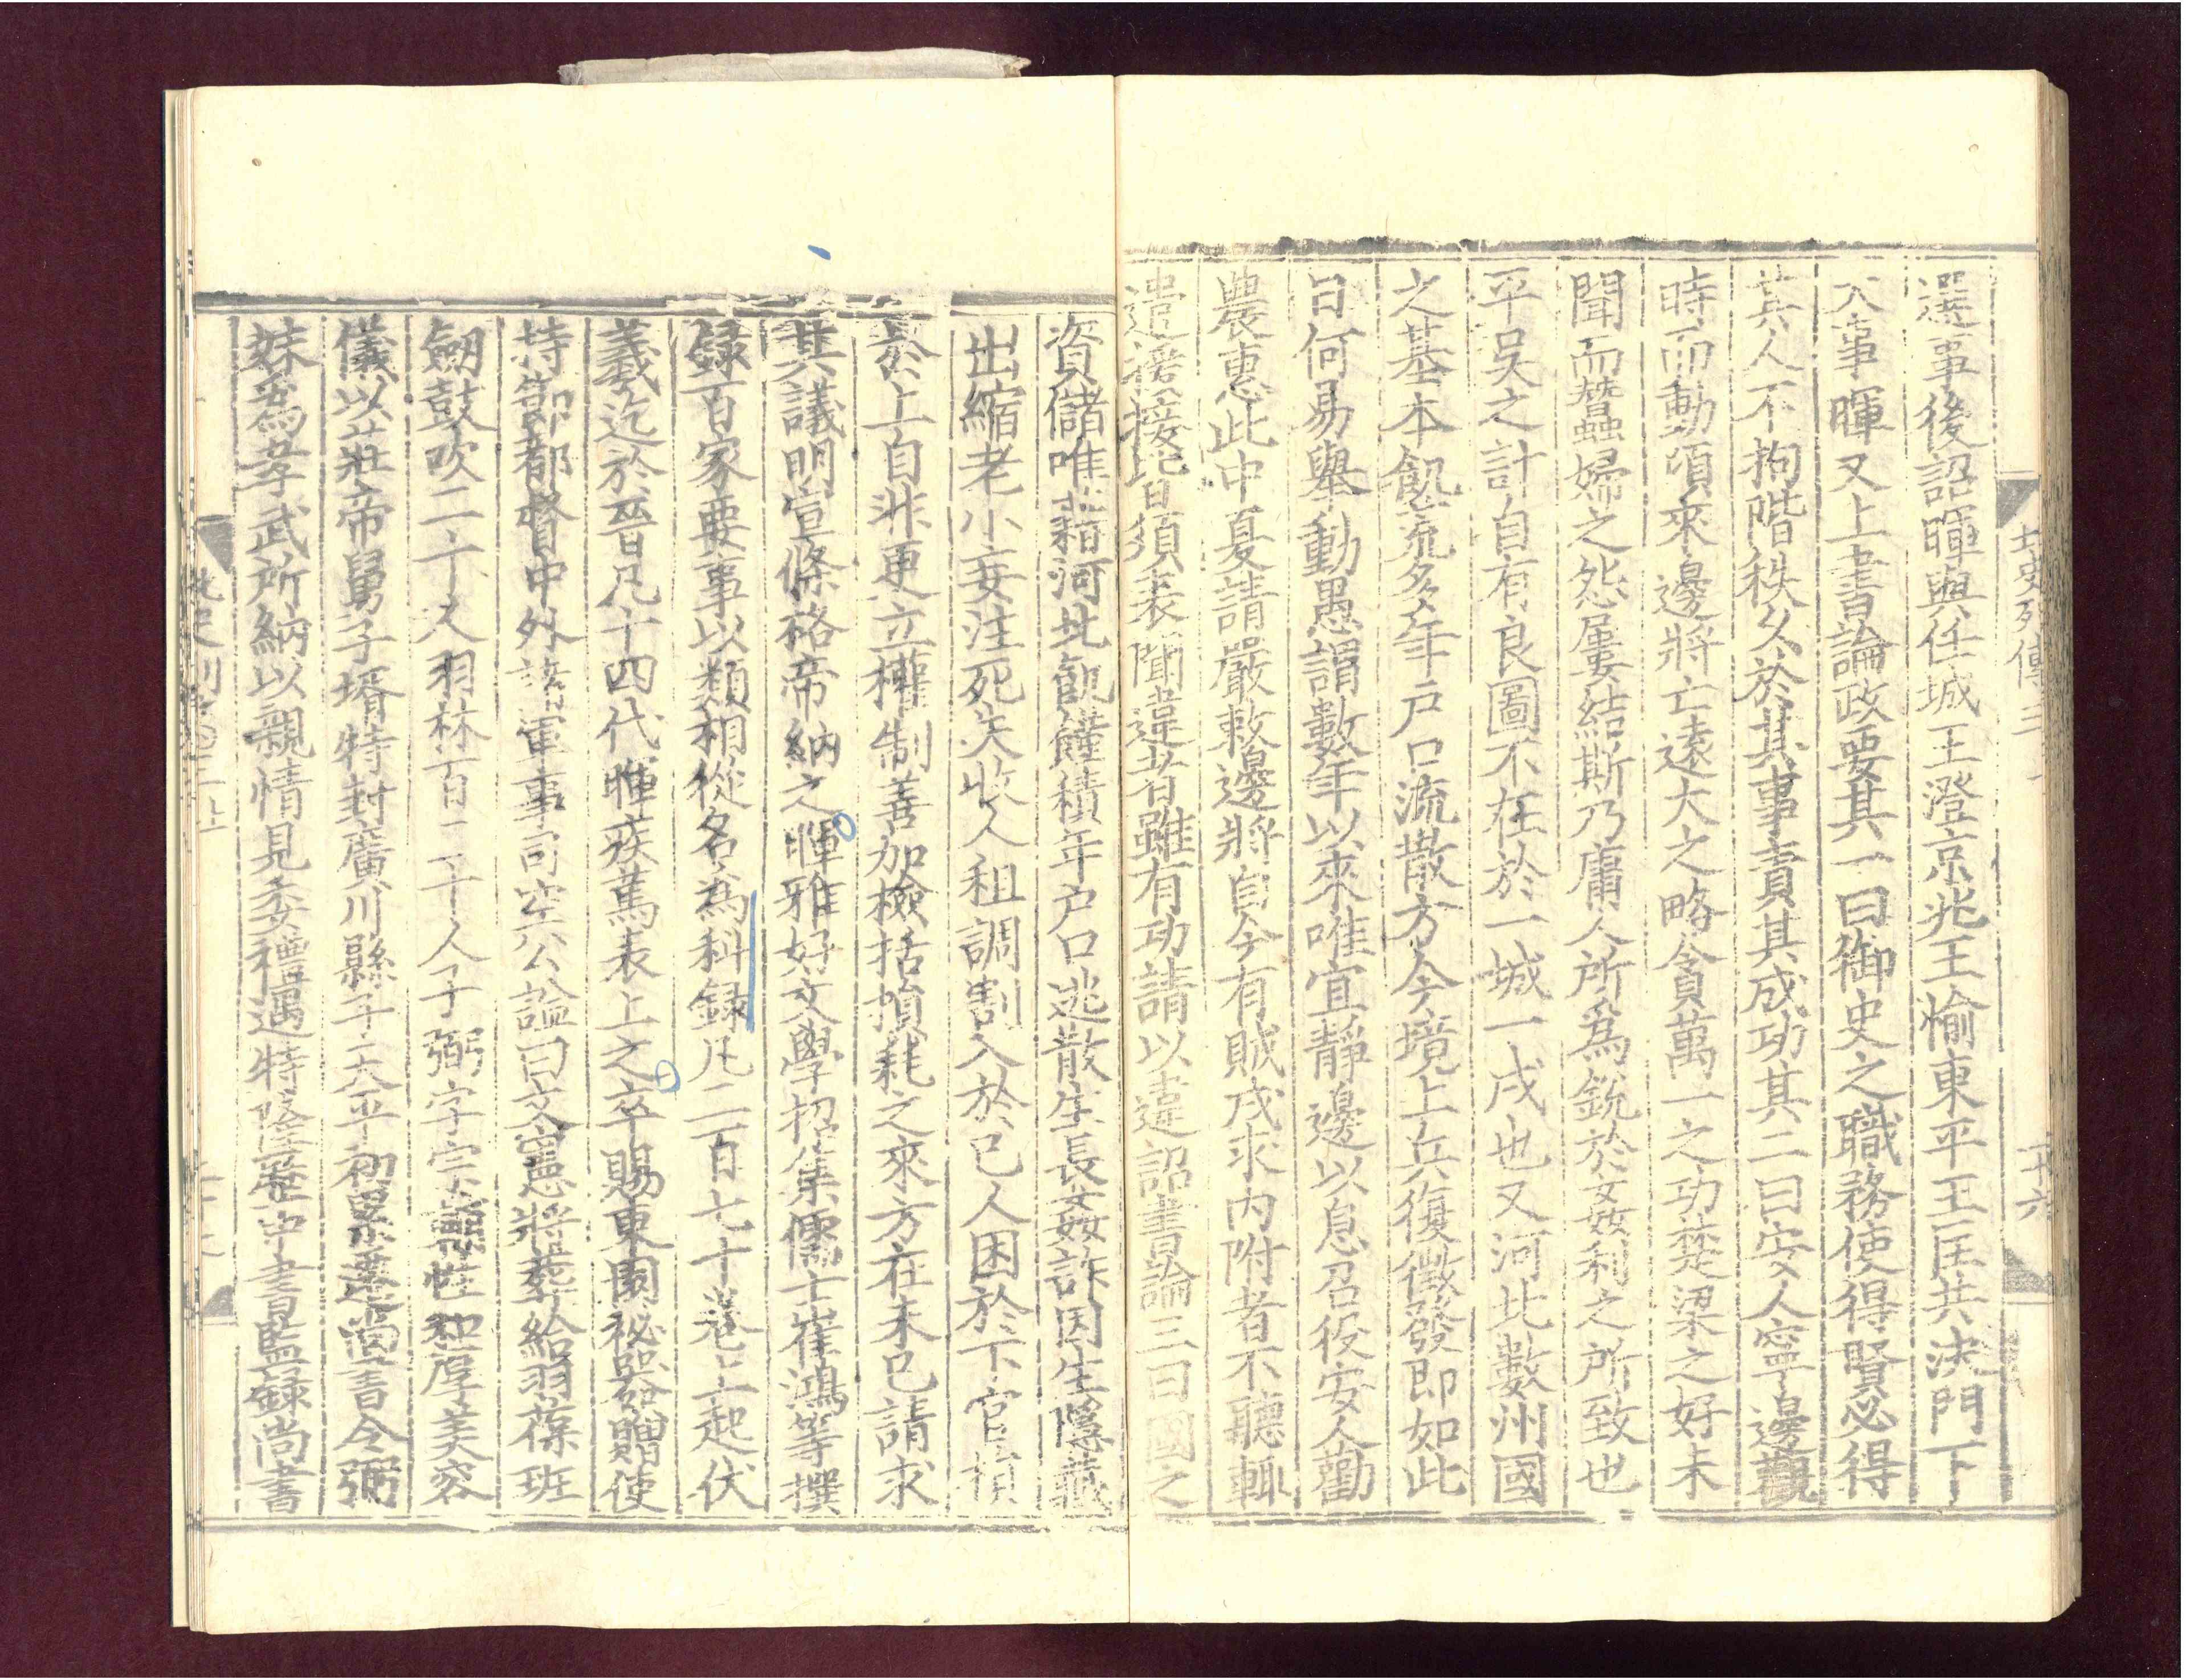 北史列傳三
二十六
選事後詔暉與任城王澄京兆王愉東平王匡共決門下
大事暉又上書論政要其一曰御史之職務使得賢必得
其人不拘階秩久於其事責其成功其二曰安人寧邊觀
時而動頃來邊將亡遠大之略貪萬一之功楚梁之好未
聞而蠶婦之怨屢結斯乃庸人所爲銳於姦利之所致也
平吳之計自有良圖不在於一城一戍也又河北數州國
之基本飢荒多年戶口流散方今境上兵復徵發即如此
日何易舉動愚謂數年以來唯宜靜邊以息召役安人勸
農惠此中夏請嚴敕邊將自今有賊戍求內附者不聽輒
遣援接皆須表聞違者雖有功請以違詔書論三曰國之
資儲唯藉河北飢饉積年戶口逃散生長姦詐因生隱藏
出縮老小妄注死失收人租調割入於己人困於下官損
於上自非更立權制善加檢括損耗之來方在未已請求
其議明宣條格帝納之暉雅好文學招集儒士崔鴻等撰
錄百家要事以類相從名爲科錄凡二百七十卷上起伏
羲迄於晉凡十四代暉疾篤表上之卒賜東園祕器贈使
持節都督中外諸軍事司空公諡曰文憲將葬給羽葆班
劒鼓吹二十人羽林百二十人子弼字宗輔性和厚美容
儀以莊帝舅子壻特封廣川縣子太平初累遷尚書令弼
妹爲孝武所納以親情見委禮遇特隆歷中書監錄尚書